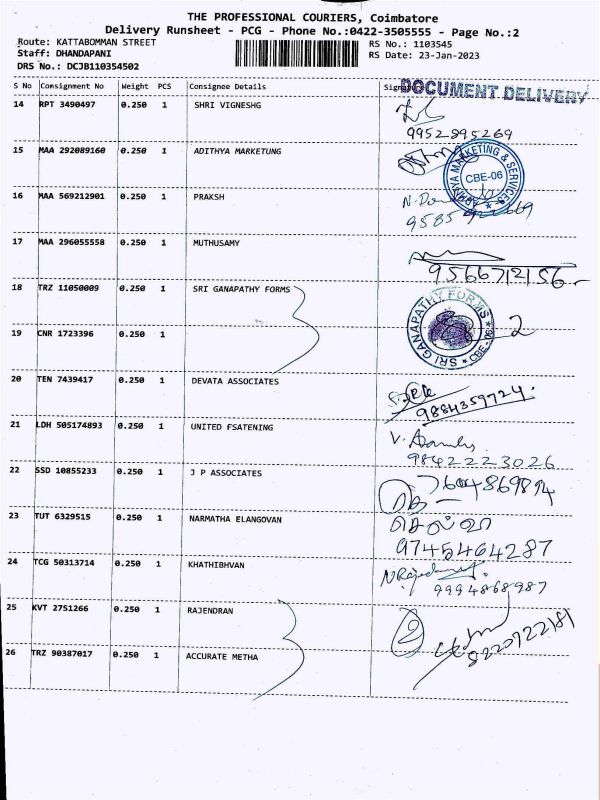 THE PROFESSIONAL COURIERS, Coimbatore
Delivery Runsheet - PCG - Phone No.:0422-3505555 - Page No.:2
Route: KATTABOMMAN STREET
RS No.: 1103545
Staff: DHANDAPANI
RS Date: 23-Jan-2023
DRS No.: DCJB110354502
S No Consignment No Weight PCS Consignee Details
DOCUMENT DELIVERY
14 RPT 3490497 0.250 1 SHRI VIGNESHG
9952895269
15 MAA 292089160 0.250 1 ADITHYA MARKETUNG
MARKETING & SERVICES CBE-06
16 MAA 569212901 0.250 1 PRAKSH
17 MAA 296055558 0.250 1 MUTHUSAMY
9566712156
18 TRZ 11050009 0.250 1 SRI GANAPATHY FORMS
SRI GANAPATHY FORMS CBE
2
19 CNR 1723396 0.250 1
20 TEN 7439417 0.250 1 DEVATA ASSOCIATES
9884359724
21 LDH 505174893 0.250 1 UNITED FSATENING
9842223026
22 SSD 10855233 0.250 1 J P ASSOCIATES
23 TUT 6329515 0.250 1 NARMATHA ELANGOVAN
9745464287
24 TCG 50313714 0.250 1 KHATHIBHVAN
9994868987
25 KVT 2751266 0.250 1 RAJENDRAN
26 TRZ 90387017 0.250 1 ACCURATE METHA